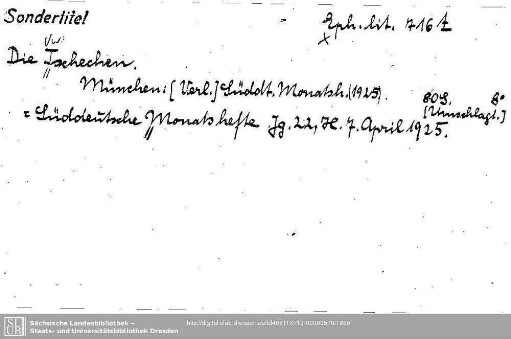 Sondertitel
Eph. lit. 716 t
x
Die Tschechen.
München: [Verl.] Süddt. Monatsh. (1925).
80 S. 8°
[Umschlagt.]
= Süddeutsche Monatshefte Jg. 22, H. 7. April 1925.
SLUB
Sächsische Landesbibliothek –
Staats- und Universitätsbibliothek Dresden